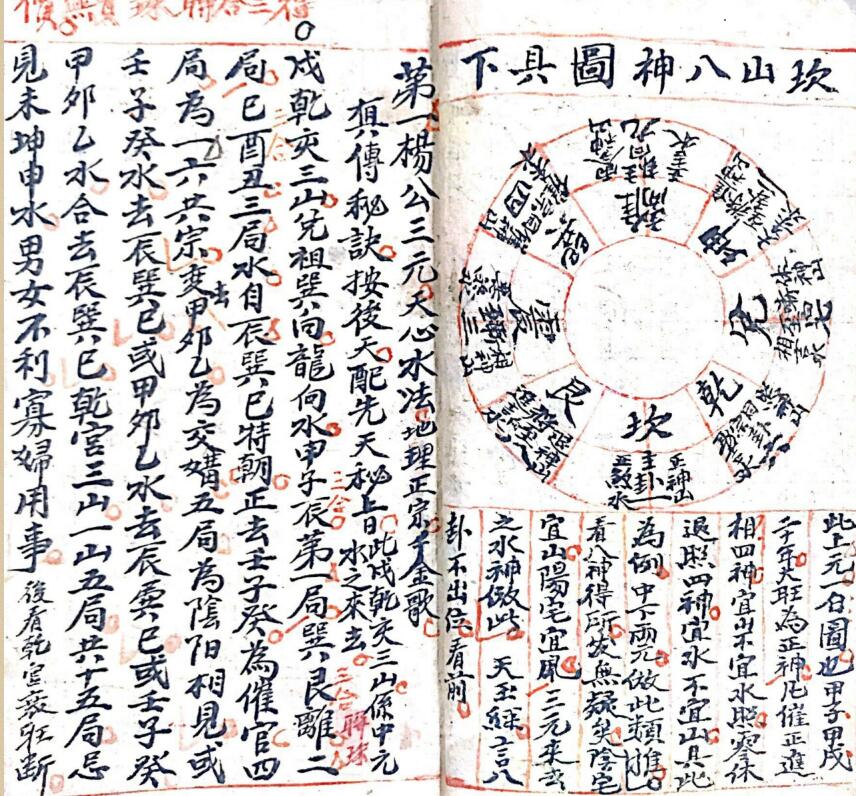 坎山八神圖具下
離
坤
兌
乾
坎
艮
震
巽
正神山
主卦一
正敬水
此上元一白圖也甲子甲戌
二十年大旺為正神凡催正進
相四神宜山不宜水照零保
退照四神宜水不宜山具此
為例中下兩元倣此類推
看八神得所發無疑矣陰宅
宜山陽宅宜風三元來去
之水神倣此 天玉經言八
卦不出位看前
第一楊公三元天心水法地理正宗千金歌
真傳秘訣按後天配先天秘上日此戌乾亥三山係中元
水之來去
三合聯珠
戌乾亥三山先祖巽向龍向水申子辰第一局巽艮離二
三合
局巳酉丑三局水自辰巽巳特朝正去壬子癸為催官四
三合
局為一六共宗变甲卯乙為交媾五局為陰阳相見或
去
壬子癸水去辰巽巳或甲卯乙水去辰巽巳或壬子癸
甲卯乙水合去辰巽巳乾宮三山一山五局共十五局忌
見未坤申水男女不利寡婦用事 後看乾宮衰旺断
三合聯珠
無價